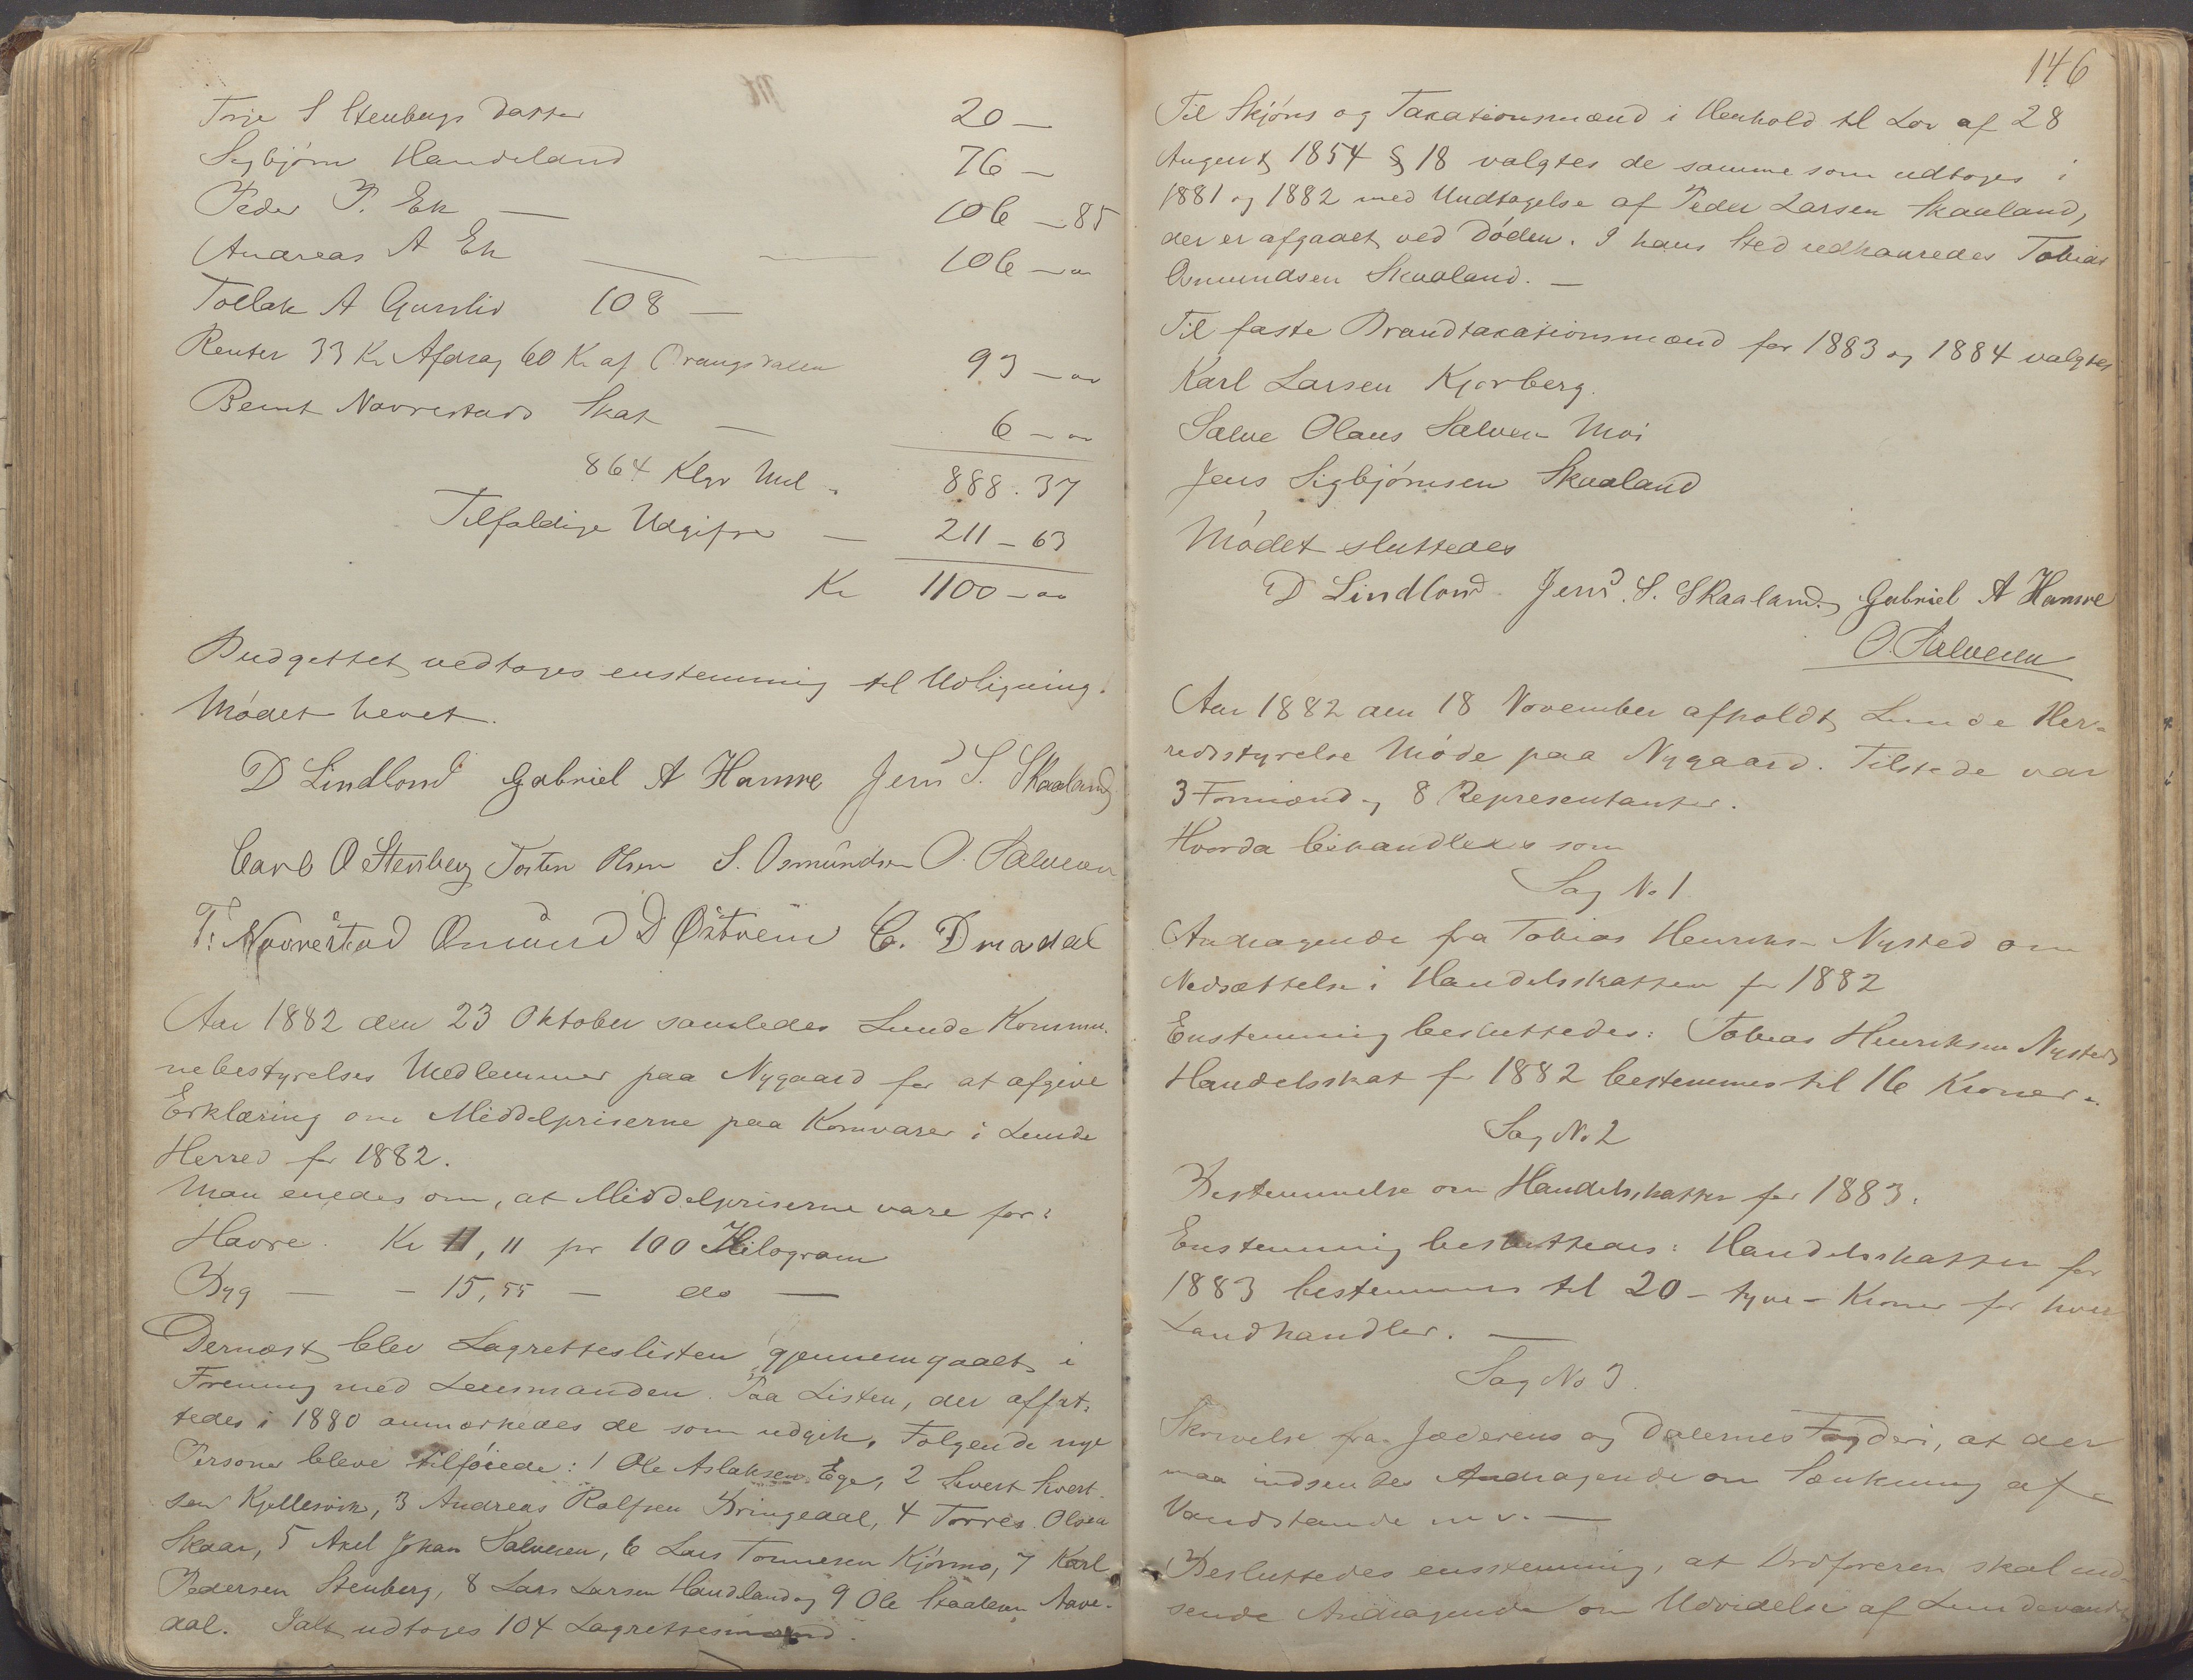 Trije S Stenbergs Datter 20 —
Sigbjørn Handeland 76 —
Peder P. Eik — 106 — 85
Andreas A Eik — — 106 — "
Tollak A Gurslid 108 —
Renter 33 Kr Afdrag 60 Kr af Orrangsdalen 93 — "
Bernt Novrestads Skat — 6 — "
864 Klgr Mel - 888.37
Tilfældige Udgifter — 211 — 63
Kr 1100 — "
Budgettet vedtoges enstemmig til Udligning.
Mødet hevet.
D Lindland Gabriel A Hamre Jens S. Skaaland
Carl O Stenberg Tosten Olsen S. Osmundsen O. Salvesen
T. Novrestad Omund D Østrem C. Dradal
Aar 1882 den 23 Oktober samledes Lunde Kommu-
nebestyrelses Medlemmer paa Nygaard for at afgive
Erklæring om Middelpriserne paa Kornvarer i Lunde
Herred for 1882.
Man enedes om, at Middelpriserne vare for:
Havre. Kr 11, 11 pr 100 Kilogram
Byg — - 15,55 — do —
Dernæst blev Lagretteslisten gjennemgaaet i
Forening med Lensmanden. Paa Listen, der affat-
tedes i 1880 anmærkedes de som udgik. Følgende nye
Personer bleve tilføiede: 1 Ole Aslaksen Ege, 2 Sivert Sivert-
sen Kjellesvik, 3 Andreas Rolfsen Bringedal, 4 Torres Olsen
Skaar, 5 Axel Johan Salvesen, 6 Lars Tonnesen Kjørmo, 7 Karl
Pedersen Stenberg, 8 Lars Larsen Handeland og 9 Ole Staalesen Aave-
dal. Ialt udtoges 104 Lagrettesmænd.
146
Til Skjøns og Taxationsmænd i Henhold til Lov af 28
August 1854 § 18 valgtes de samme som udtoges i
1881 og 1882 med Undtagelse af Peder Larsen Skaaland,
der er afgaaet ved Døden. I hans Sted udkaaredes Tobias
Osmundsen Skaaland. —
Til faste Brandtaxationsmænd for 1883 og 1884 valgtes
Karl Larsen Kjørberg.
Salve Olaus Salvesen Moi
Jens Sigbjørnsen Skaaland
Mødet sluttedes
D Lindland Jens. S. Skaaland Gabriel A Hamre
O. Salvesen
Aar 1882 den 18 November afholdt Lunde Her-
redsstyrelse Møde paa Nygaard. Tilstede var
3 Formænd og 8 Repræsentanter.
Hvorda behandledes som
Sag No 1.
Andragende fra Tobias Henriksen Nysted om
Nedsættelse i Handelsskatten for 1882
Enstemmig besluttedes: Tobias Henriksen Nysteds
Handelsskat for 1882 bestemmes til 16 Kroner.
Sag No 2
Bestemmelse om Handelsskatten for 1883.
Enstemmig besluttedes: Handelsskatten for
1883 bestemmes til 20 – tyve – Kroner for hver
Landhandler. —
Sag No 3.
Skrivelse fra Jæderens og Dalernes Fogderi, at der
maa indsendes Andragende om Sænkning af
Vandstande m.v. —
Besluttedes ensstemmig, at Ordføreren skal ind-
sende Andragende om Udvidelse af Lundevandets